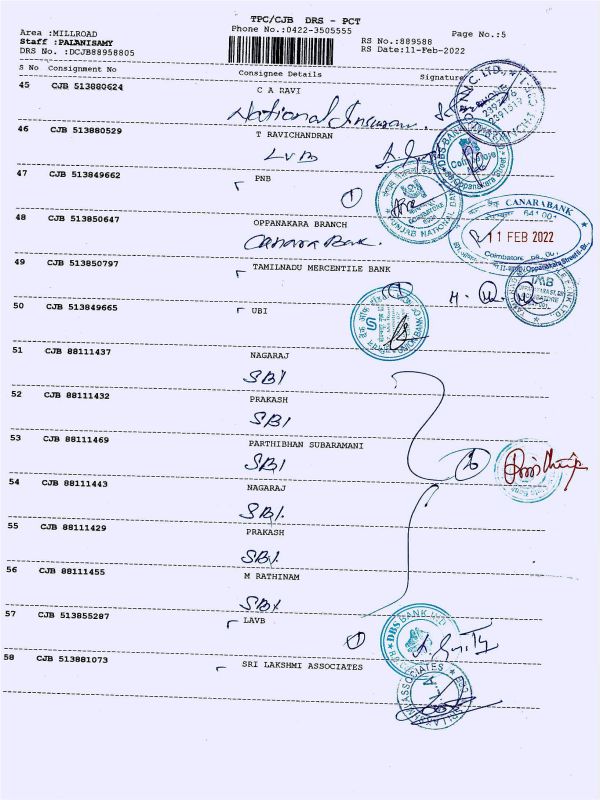 TPC/CJB DRS - PCT
Area :MILLROAD Phone No.:0422-3505555 Page No.:5
Staff :PALANISAMY RS No.:889588
DRS No. :DCJB88958805 RS Date:11-Feb-2022
S No Consignment No Consignee Details Signature
45 CJB 513880624 C A RAVI
National Insuran.
46 CJB 513880529 T RAVICHANDRAN
LVB
47 CJB 513849662 PNB
1
48 CJB 513850647 OPPANAKARA BRANCH
Canara Bank.
CANARA BANK
641 001
11 FEB 2022
49 CJB 513850797 TAMILNADU MERCENTILE BANK
1
TMB
50 CJB 513849665 UBI
51 CJB 88111437 NAGARAJ
SBI
52 CJB 88111432 PRAKASH
SBI
53 CJB 88111469 PARTHIBHAN SUBARAMANI
SBI
6
54 CJB 88111443 NAGARAJ
SBI
55 CJB 88111429 PRAKASH
SBI
56 CJB 88111455 M RATHINAM
SBI
57 CJB 513855287 LAVB
1
DBS BANK
58 CJB 513881073 SRI LAKSHMI ASSOCIATES